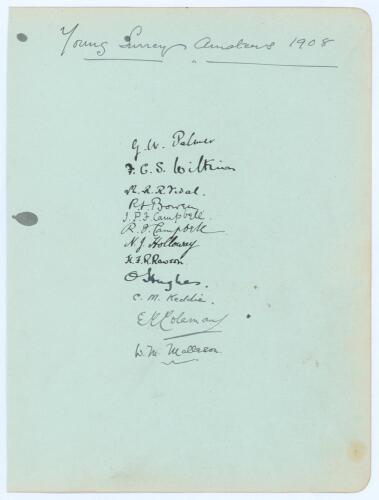 Young Surrey Amateurs 1908
G. W. Palmer
F. C. S. Wilkinson
R. R. Vidal.
R. J. Bowen
I. P. F. Campbell.
R. J. Campbell
N. J. Holloway
H. F. R. Rawson
O Hughes.
C. M. Keddie.
E C Coleman
W. M. Mallison